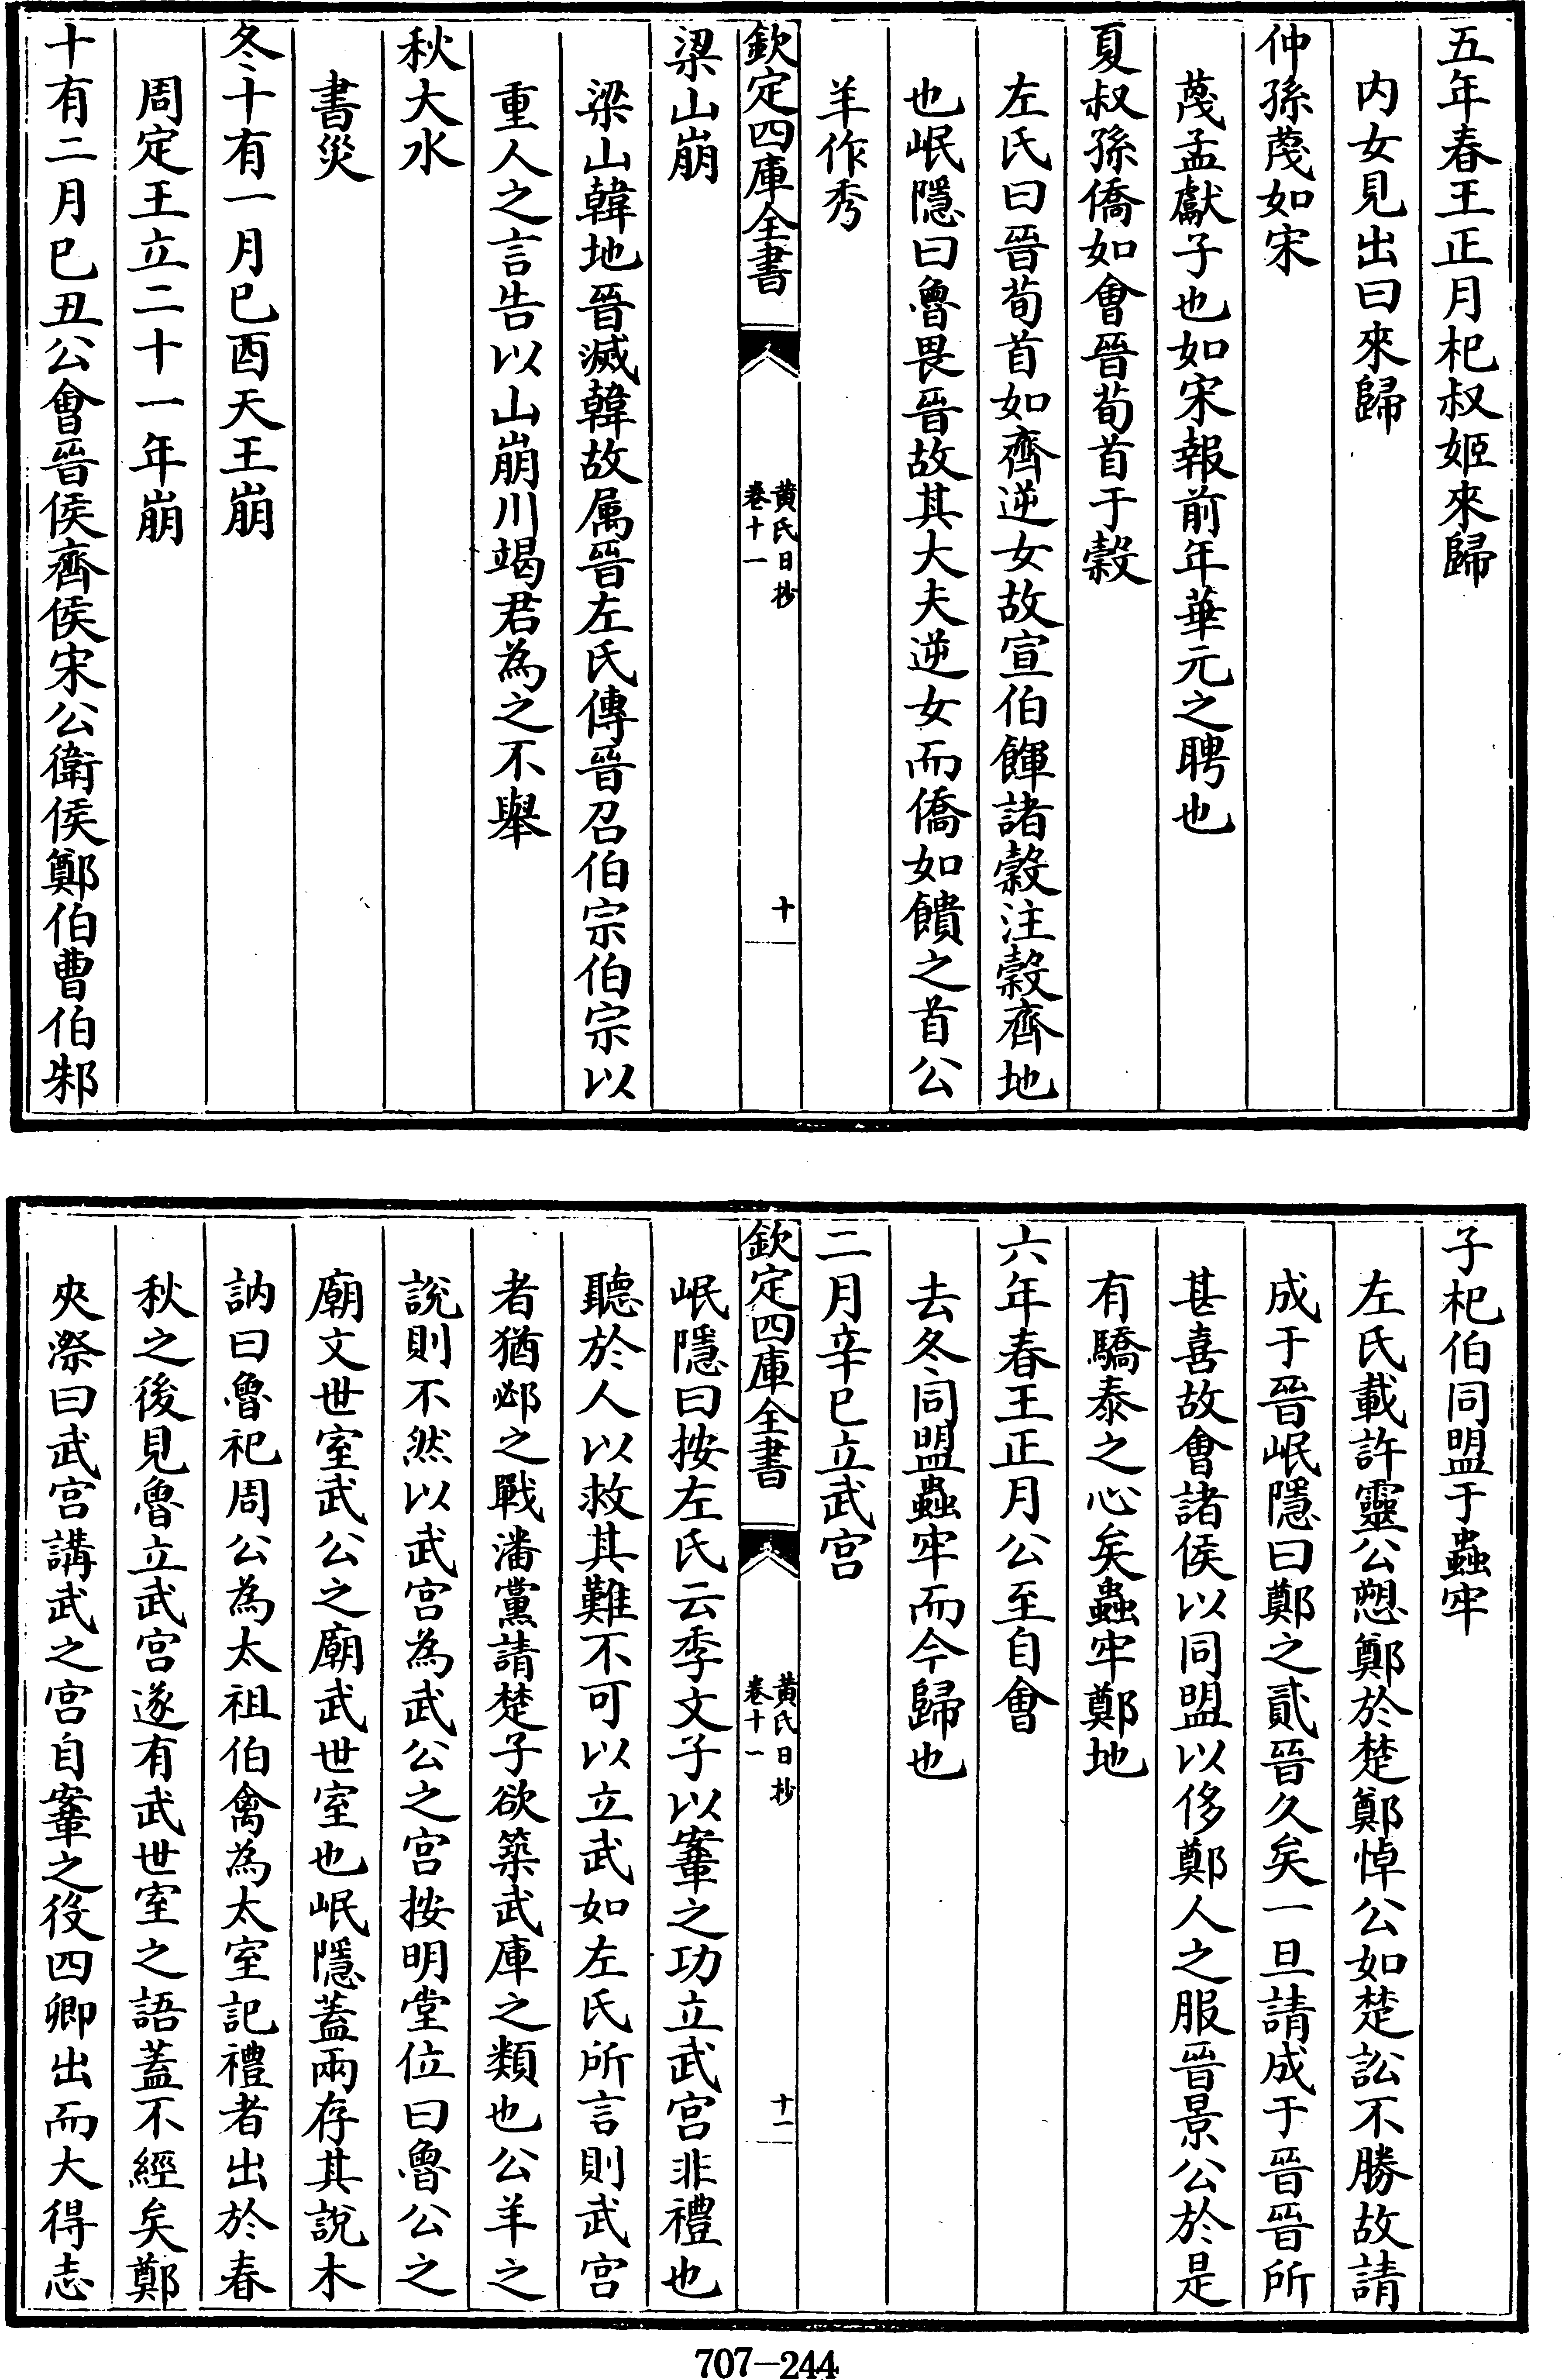 五年春王正月杞叔姬來歸
内女見出曰來歸
仲孫蔑如宋
蔑孟獻子也如宋報前年華元之聘也
夏叔孫僑如會晉荀首于穀
左氏曰晉荀首如齊逆女故宣伯餫諸穀注穀齊地
也岷隱曰魯畏晉故其大夫逆女而僑如饋之首公
羊作秀
欽定四庫全書
黄氏日抄
卷十一
十
梁山崩
梁山韓地晉滅韓故属晉左氏傳晉召伯宗伯宗以
重人之言告以山崩川竭君為之不舉
秋大水
書災
冬十有一月己酉天王崩
周定王立二十一年崩
十有二月己丑公會晉侯齊侯宋公衛侯鄭伯曹伯邾
子杞伯同盟于蟲牢
左氏載許靈公愬鄭於楚鄭悼公如楚訟不勝故請
成于晉岷隱曰鄭之貳晉久矣一旦請成于晉晉所
甚喜故會諸侯以同盟以侈鄭人之服晉景公於是
有驕泰之心矣蟲牢鄭地
六年春王正月公至自會
去冬同盟蟲牢而今歸也
二月辛巳立武宫
欽定四庫全書
黄氏日抄
卷十一
十一
岷隱曰按左氏云季文子以鞌之功立武宫非禮也
聽於人以救其難不可以立武如左氏所言則武宫
者猶邲之戰潘黨請楚子欲築武庫之類也公羊之
説則不然以武宫為武公之宫按明堂位曰魯公之
廟文世室武公之廟武世室也岷隱蓋兩存其說木
訥曰魯祀周公為太祖伯禽為太室記禮者出於春
秋之後見魯立武宫遂有武世室之語蓋不經矣鄭
夾漈曰武宫講武之宫自鞌之役四卿出而大得志
707-244